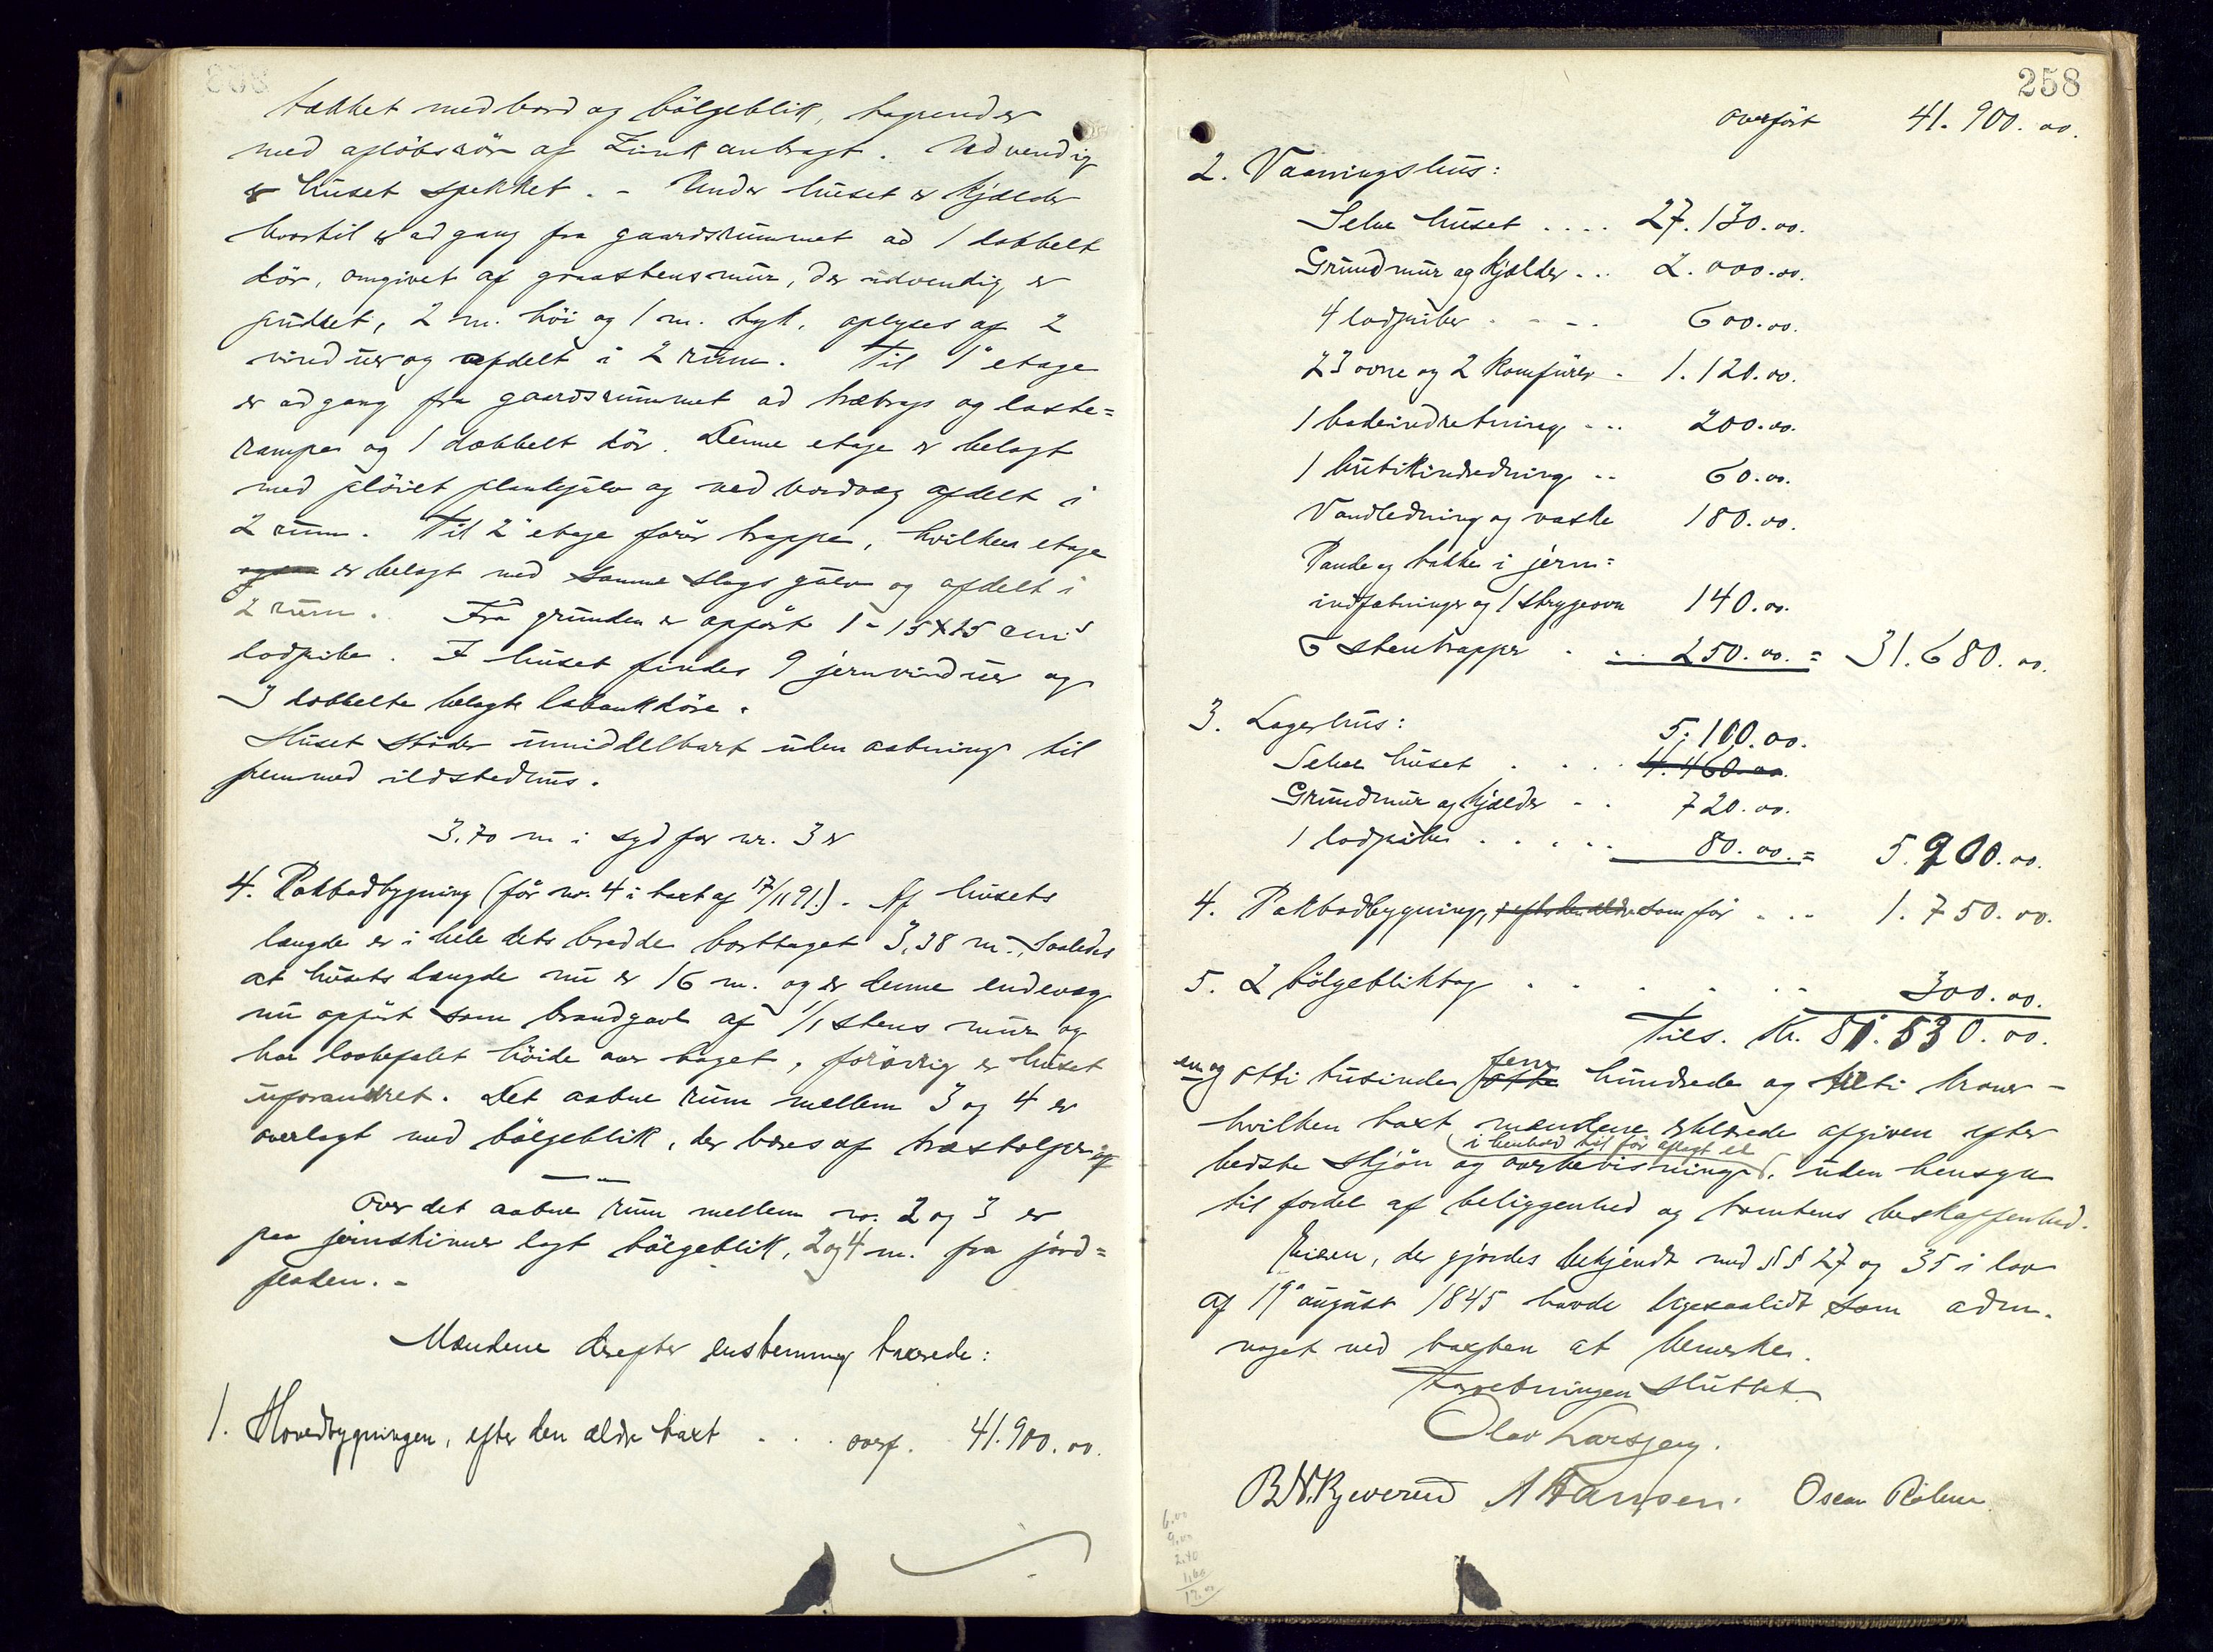 tækket med bord og bölgeblik, tagrender
med aflöbsrör af Zink anbragt. Udvendig
er huset spekket. - Under huset er kjælder
hvortil er adgang fra gaardsrummet ad 1 dobbelt
dör, omgivet af graastensmur, der udvendig er
pudset, 2 m. höi og 1 m. tyk, oplyses af 2
vinduer og afdelt i 2 rum. Til 1ˢ etage
er adgang fra gaardsrummet ad trætrap og laste=
rampe og 1 dobbelt dör. Denne etage er belagt
med plöiet plankgulv og ved bordvæg afdelt i
2 rum. Til 2ⁿ etage förer trappe, hvilken etage
er belagt med samme slags gulv og afdelt i
2 rum. Fra grunden er opfört 1 - 15 x 25 cm's
lodpibe. I huset findes 9 jernvinduer og
3 dobbelte belagte labankdöre.
Huset stöder umiddelbart uden aabning til
fremmed ildstedhus.
3.70 m i syd for nr. 3 er
4. Pakbodbygning (för nr. 4 i taxt af 17/11 91.). Af husets
længde er i hele dets bredde borttaget 3,38 m., saaledes
at husets længde nu er 16 m. og er denne endevæg
nu opfört som brandgavl af 1/1 stens mur og
har lovbefalet höide over taget, forövrig er huset
uforandret. Det aabne rum mellem 3 og 4 er
overlagt med bölgeblik, der bæres af træstolper
Over det aabne rum mellem nr. 2 og 3 er
paa jernskinner lagt bölgeblik, 2 og 4 m. fra jord=
fladen. -
Mændene derefter enstemmig taxerede:
1. Hovedbygningen, efter den ældre taxt . . . overf. 41.900.00.
258
overfört 41.900.00.
2. Vaaningshus:
Selve huset .... 27.130.00.
Grundmur og kjælder ... 2.000.00.
4 lodpiber . - - . 600.00.
23 ovne og 2 komfurer . 1.120.00.
1 badeindretning ... 200.00.
1 butikindredning .. 60.00.
Vandledning og vaske 180.00.
Pande og bakke i jern=
indfatninger og 1 strygeovn 140.00.
6 stentrapper . . . . 250.00. = 31.680.00.
3. Lagerhus:
5.100.00.
Selve huset . . . . 4.460.00.
Grundmur og kjælder - . 720.00.
1 lodpibe . . . . . 80.00. = 5.900.00.
4. Pakbodbygning, efter den ældre som för ... 1.750.00.
5. 2 bölgebliktag . . . . . . 300.00.
Tils. Kr. 81.530.00.
en og otti tusinde otte fem hundrede og tretti kroner -
hvilken taxt mændene erklærede afgiven efter
i henhold til för aflagt ed
bedste skjön og overbevisning, uden hensyn
til fordel af beliggenhed og tomtens beskaffenhed.
Eieren, der gjordes bekjendt med §§ 27 og 35 i lov
af 19ᵉ august 1845 havde ligesaalidt som adm.
noget ved taxten at bemerke.
Forretningen sluttet
Olav Larssen.
A Hansen. Oscar
6.00
9.00
2.40
1,60
19.00